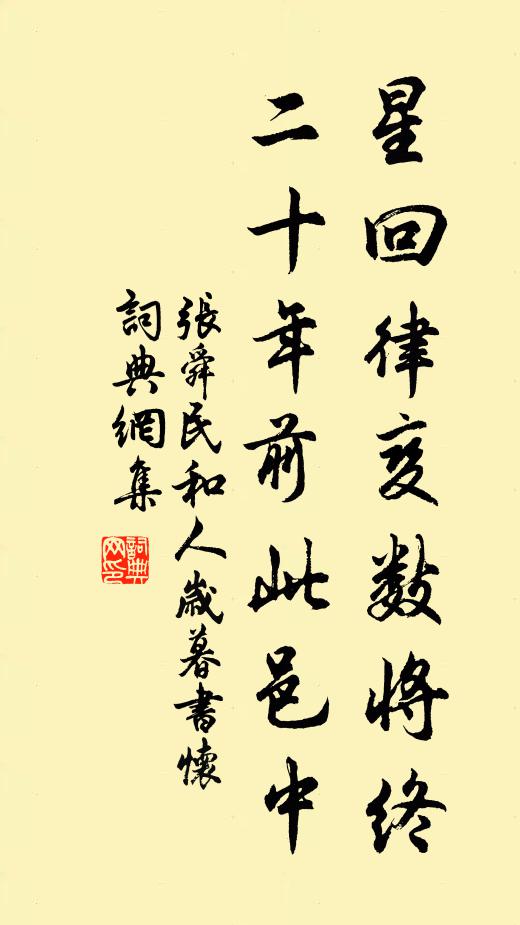 星回律变数将终
二十年前此邑中
張舜民和人歲暮書懷
詞典網集
詞典网印